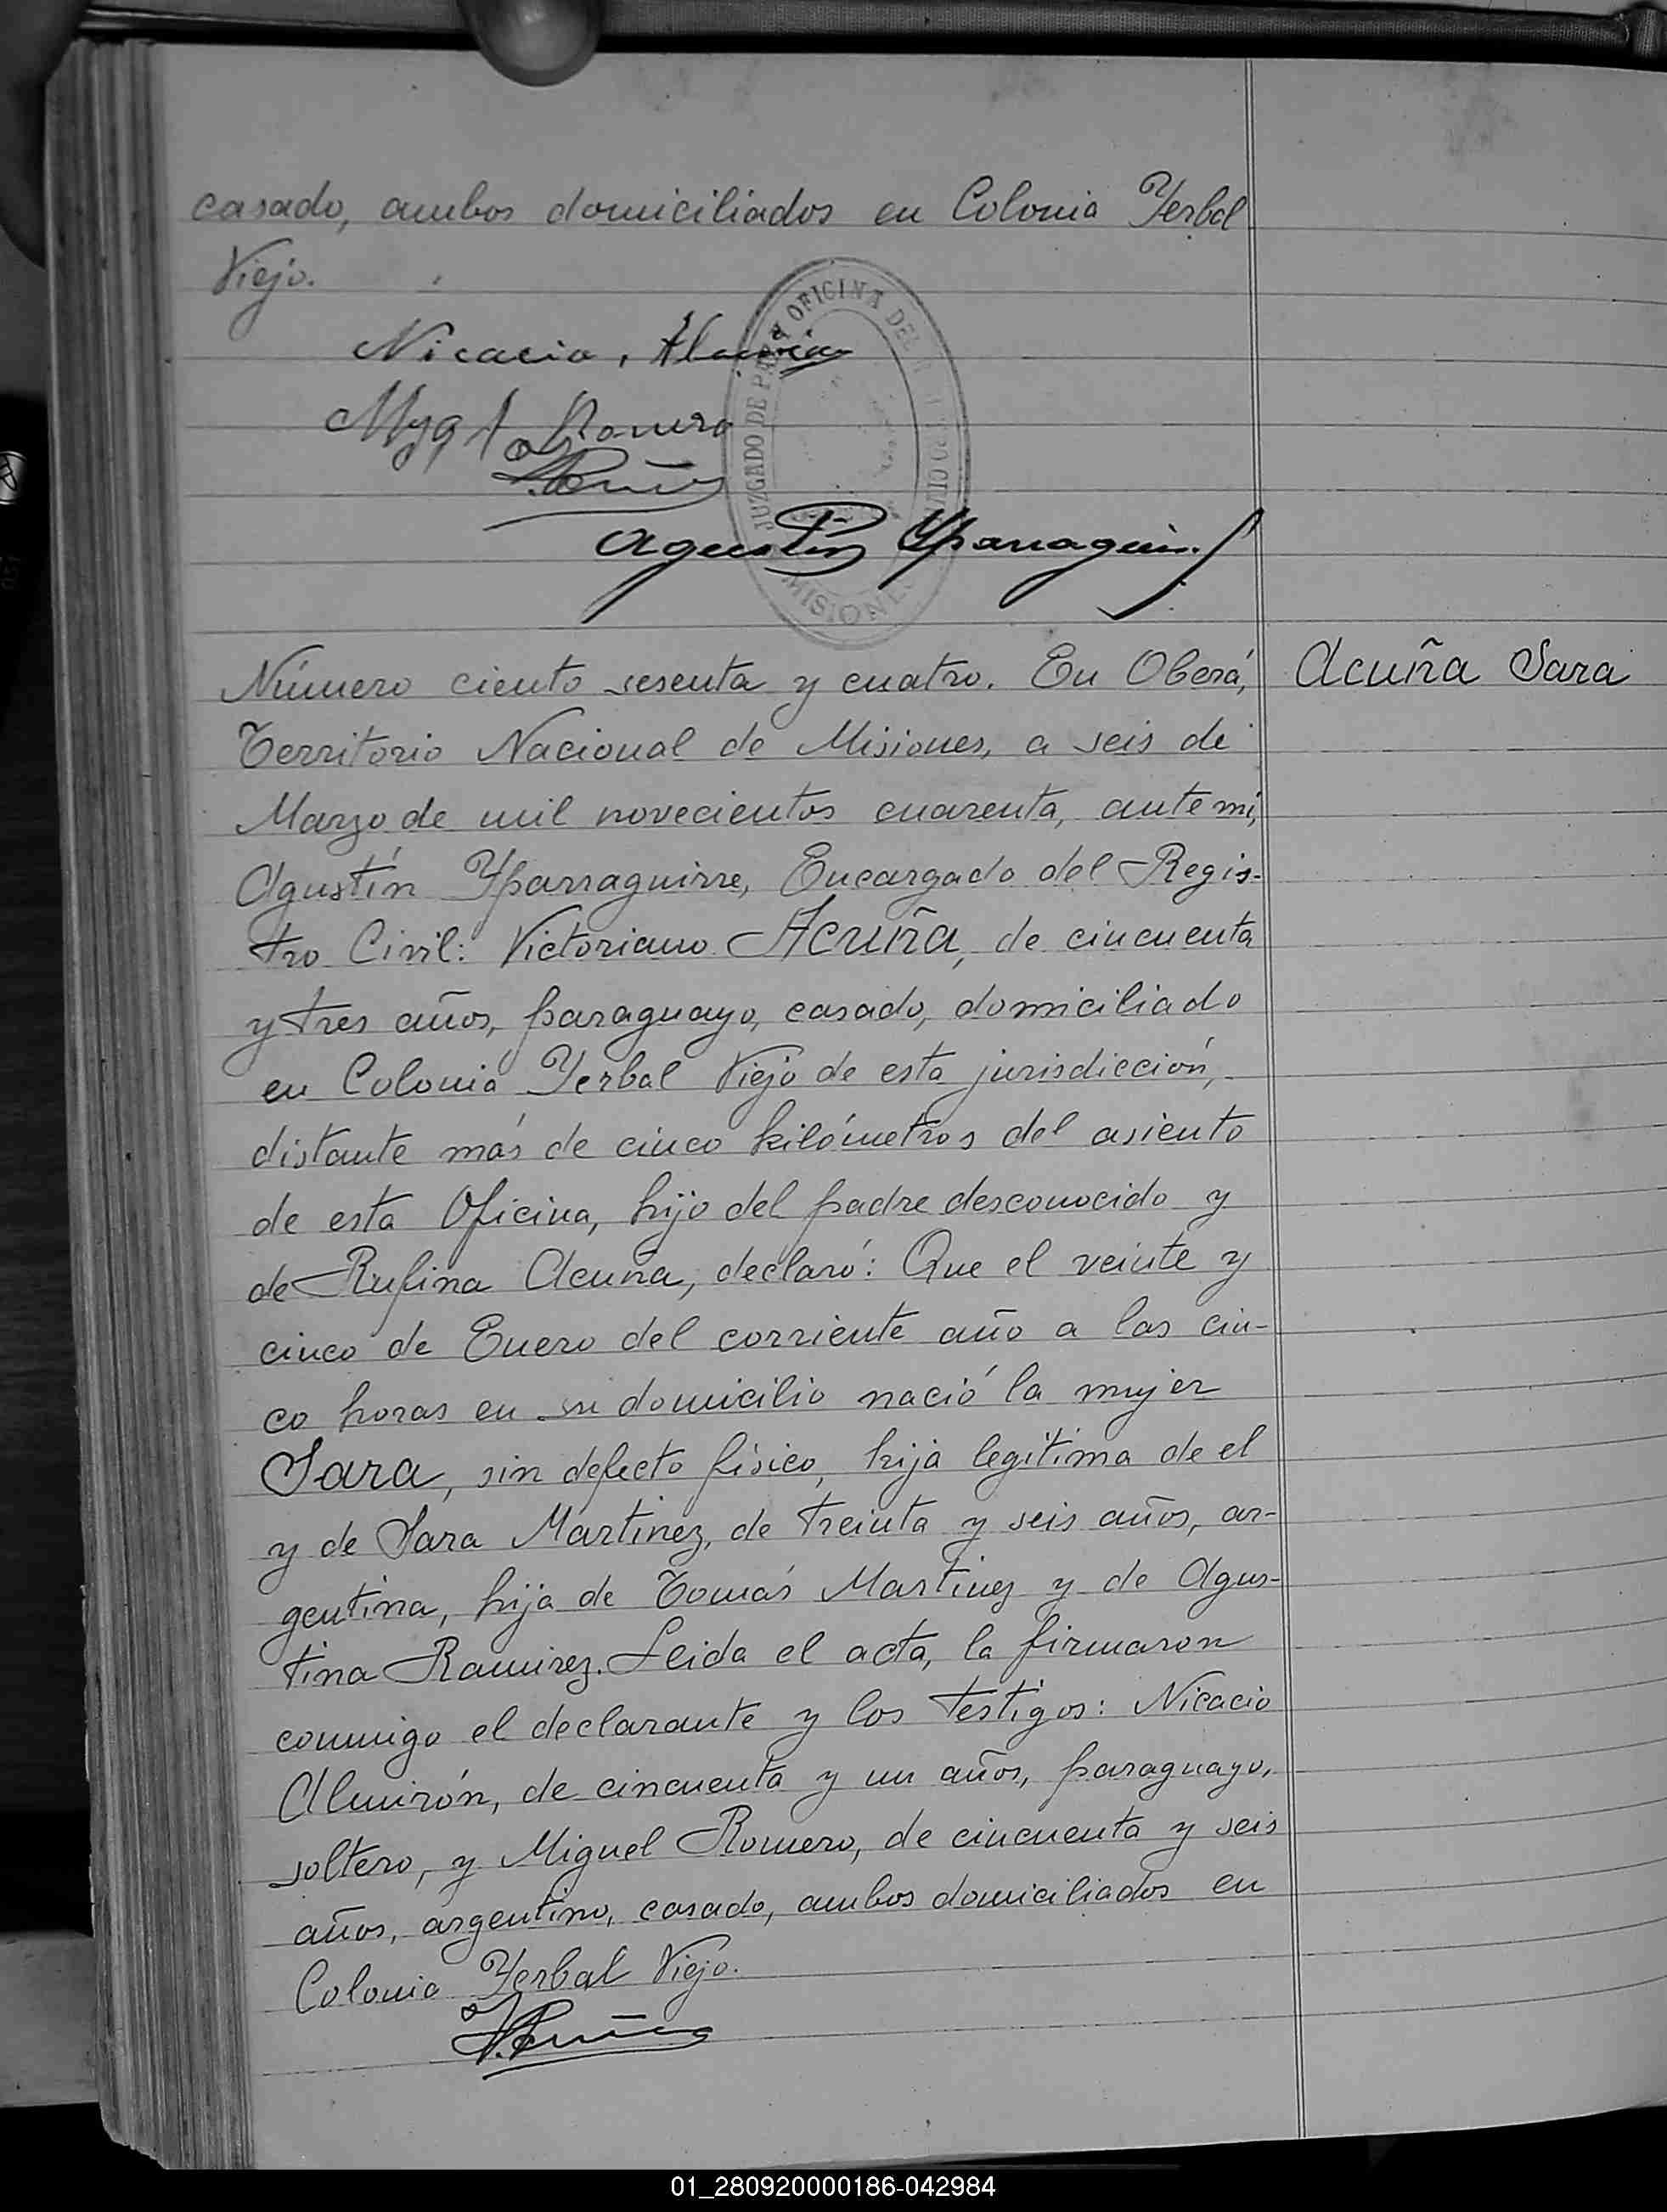 casado, ambos domiciliados en Colonia Yerbal
Viejo.
Nicacio Almirón
Romero
Agustín Yparraguirre
JUZGADO DE PAZ Y OFICINA DEL
MISIONES
Número ciento sesenta y cuatro. En Oberá,
Acuña Sara
Territorio Nacional de Misiones, a seis de
Marzo de mil novecientos cuarenta, ante mí,
Agustín Yparraguirre, Encargado del Regis-
tro Civil: Victoriano Acuña, de cincuenta
y tres años, paraguayo, casado, domiciliado
en Colonia Yerbal Viejo de esta jurisdicción,
distante más de cinco kilómetros del asiento
de esta Oficina, hijo del padre desconocido y
de Rufina Acuña, declaró: Que el veinte y
cinco de Enero del corriente año a las cin-
co horas en su domicilio nació la mujer
Sara, sin defecto físico, hija legítima de el
y de Sara Martinez, de treinta y seis años, ar-
gentina, hija de Tomás Martinez y de Agus-
tina Ramirez. Leida el acta, la firmaron
conmigo el declarante y los testigos: Nicacio
Almirón, de cincuenta y un años, paraguayo,
soltero, y Miguel Romero, de cincuenta y seis
años, argentino, casado, ambos domiciliados en
Colonia Yerbal Viejo.
01_280920000186-042984